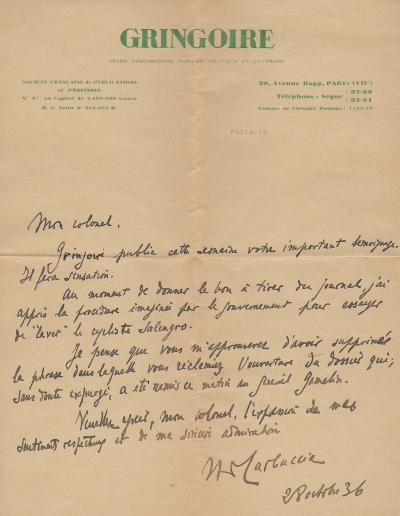 GRINGOIRE
GRAND HEBDOMADAIRE PARISIEN POLITIQUE ET LITTÉRAIRE
SOCIÉTÉ FRANÇAISE de PUBLICATIONS
et d'ÉDITIONS
au Capital de 2.100.000 francs
R. C. Seine N°
20, Avenue Rapp, PARIS (VIIe)
Téléphone : Ségur 92-80
92-81
Compte de Chèques Postaux :
Paris, le
Mon colonel,
Gringoire publie cette semaine votre important témoignage.
Il fera sensation.
Au moment de donner le bon à tirer du journal, j'ai
appris la procédure imaginée par le gouvernement pour essayer
de "laver" le cycliste Salengro.
Je pense que vous m'approuverez d'avoir supprimé
la phrase dans laquelle vous réclamiez l'ouverture du dossier qui,
sans doute expurgé, a été remis ce matin au général Gamelin.
Veuillez agréer, mon colonel, l'expression de mes
sentiments respectueux et de ma sincère admiration
H de Carbuccia
28 octobre 36